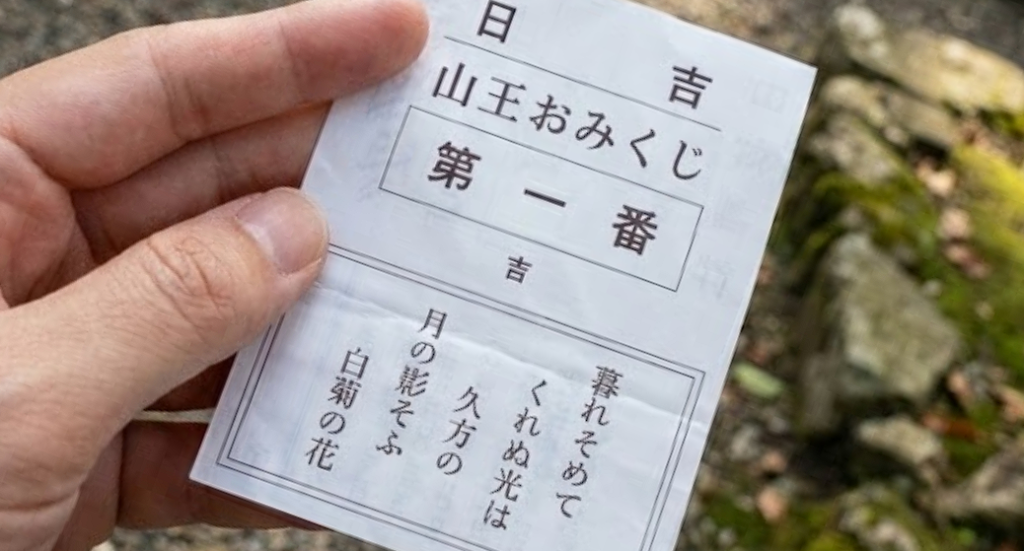 日吉
山王おみくじ
第一番
吉
暮れそめて
くれぬ光は
久方の
月の影そふ
白菊の花